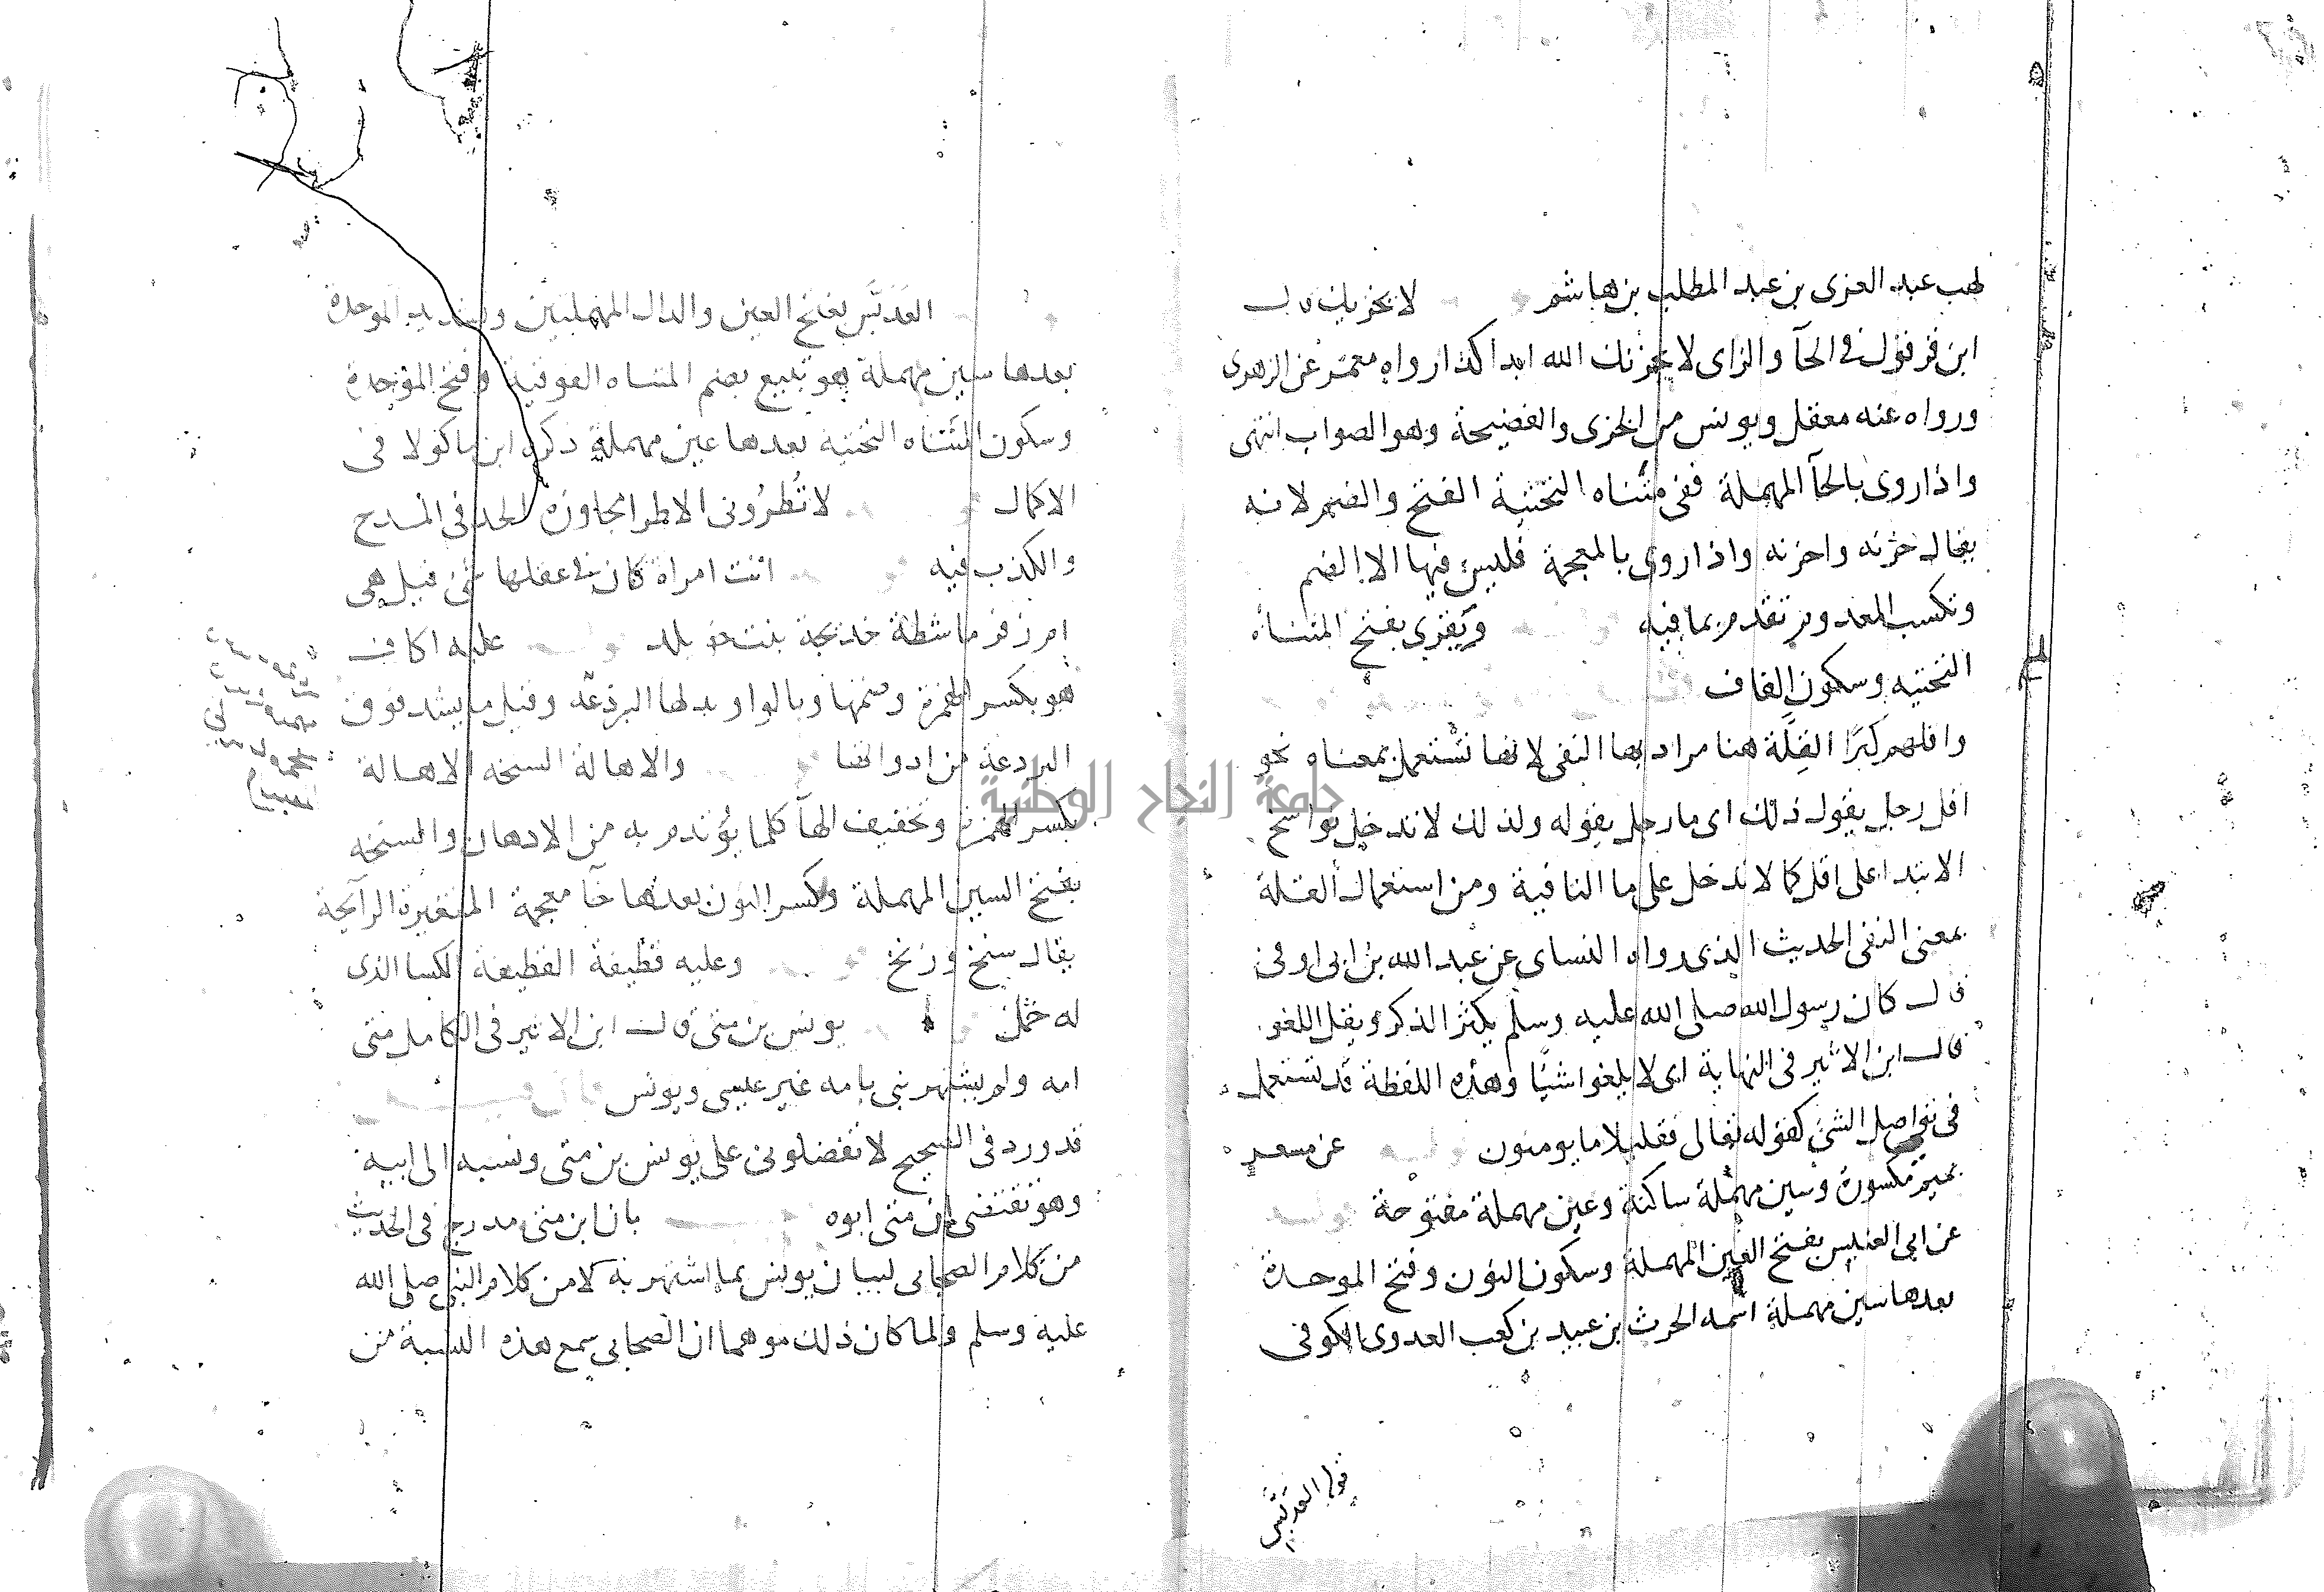 لهب عبد العزى بن عبد المطلب بن هاشم لا يخزيك قال
ابن قرقول في الحآ والزاى لا يحزنك الله ابدا كذا رواه معمر عن الزهرى
ورواه عنه معقل ويونس من الخزى والفضيحة وهو الصواب انتهى
واذا روى بالحآ المهملة ففى مثناه التحتية الفتح والضم لانه
يقال حزنه واحزنه واذا روى بالمعجمة فليس فيها الا الضم
وتكسب المعدوم تقدم بما فيه وَيَقْرِي بفتح المثناه
التحتيه وسكون القاف
واقلهم كِبَرًا القِلَّة هنا مراد بها النفى لانها تُستعمل بمعناه نحو
اقل رجل يقول ذلك اى ما رجل يقوله ولذلك لا تدخل نواسخ
الابتدا على اقل كما لا تدخل على ما النافية ومن استعمال القلة
بمعنى النفى الحديث الذى رواه النساى عن عبد الله بن ابى اوفى
قال كان رسول الله صلى الله عليه وسلم يكثر الذكر ويقل اللغو
قال ابن الاثير في النهاية اى لا يلغوا شيًّا وهذه اللفظة قد تستعمل
في نفى اصل الشئ كقوله تعالى فقليلا ما يومنون عن مسعر
بميم مكسورة وسين مهملة ساكنة وعين مهملة مفتوحة
عن ابى العنبس بفتح العين المهملة وسكون النون وفتح الموحدة
بعدها سين مهملة اسمه الحرث بن عبيد بن كعب العدوى الكوفى
قوله العدبّس
العَدَبَّس بفتح العين والدال المهملتين وتشديد الموحدة
بعدها سين مهملة هو تبيع بضم المثناه الفوقية وفتح الموحدة
وسكون المثناه التحتية بعدها عين مهملة ذكره ابن ماكولا فى
الاكمال لا تُطرُونى الاطرا مجاوزة الحد فى المدح
والكذب فيه اتت امراة كان فى عقلها شئ قيل هى
ام زفر ماشطة خديجة بنت خويلد عليه اكاف
هو بكسر الهمزة وضمها وبالواو بدلها البرذعة وقيل ما يشد فوق
البردعة من ادواتها والاهالة السنخه الاهالة
بكسر الهمزة وتخفيف الهآ كلما يؤتدم به من الادهان والسنخه
بفتح السين المهملة وكسر النون بعدها خآ معجمة المتغيرة الرآيحة
يقال سنخ وزنخ وعليه قطيفة القطيفة الكسا الذى
له خمل يونس بن متى قال ابن الاثير فى الكامل متى
امه ولم يشتهر نبى بامه غير عيسى ويونس
قد ورد فى الصحيح لا تفضلونى على يونس بن متى ونسبه الى ابيه
وهو يقتضى ان متى ابوه بان ابن متى مدرج فى الحديث
من كلام الصحابى لبيان يونس بما اشتهر به لا من كلام النبى صلى الله
عليه وسلم ولما كان ذلك موهما ان الصحابى سمع هذه النسبة من
جامعة النجاح الوطنية